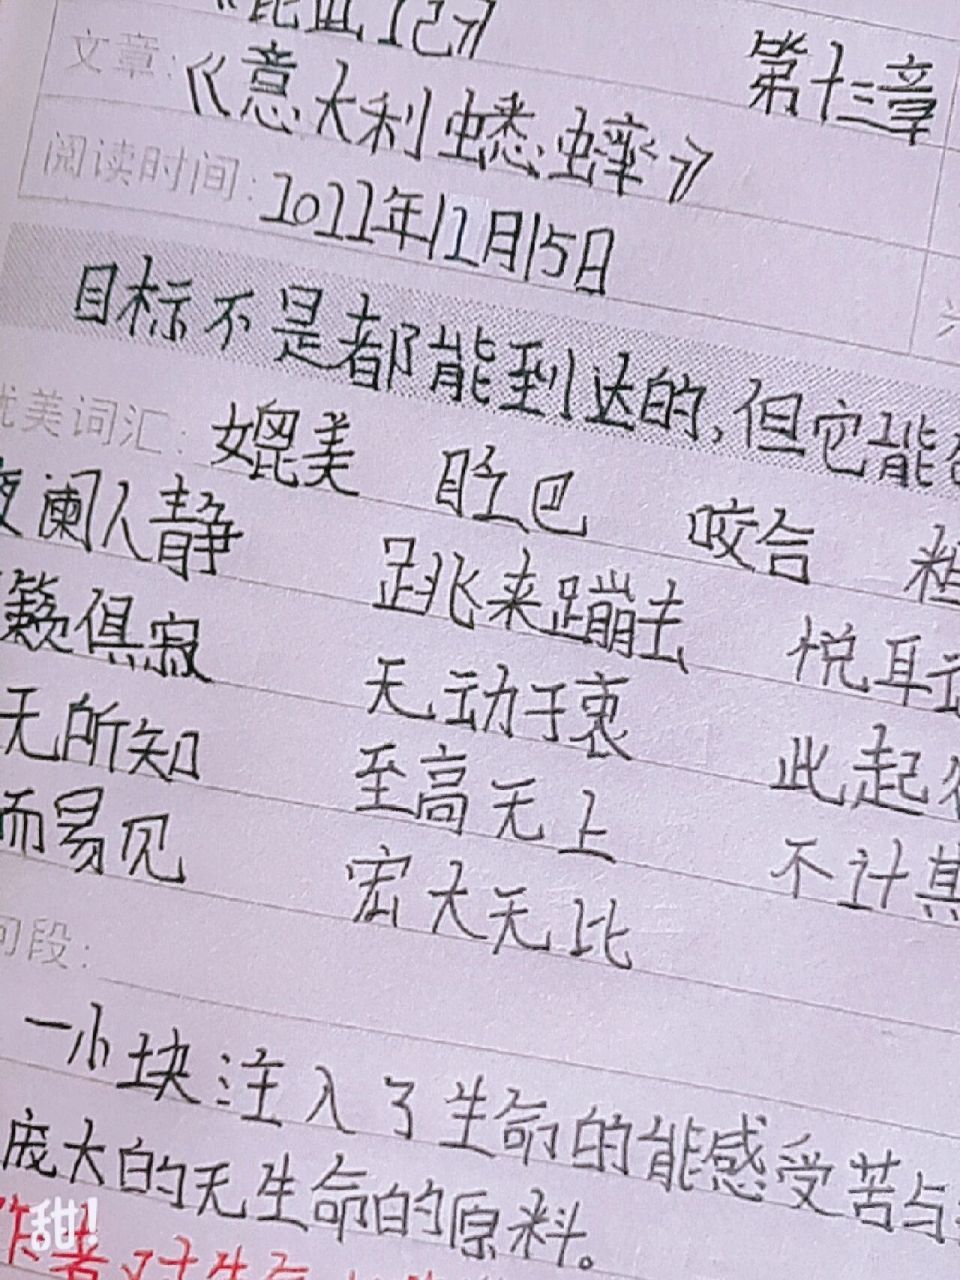 《昆虫记》 第十三章
文章:《意大利蟋蟀》
阅读时间:2022年12月15日
目标不是都能到达的,但它能
优美词汇:媲美 眨巴 咬合
夜阑人静 跳来蹦去 悦耳动
籁俱寂 无动于衷 此起
无所知 至高无上 不计其
而易见 宏大无比
句段:
一小块注入了生命的能感受苦与
庞大的无生命的原料。
作者对生
甜!